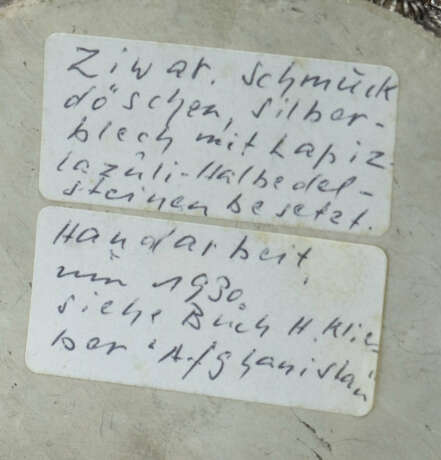 Ziwar. Schmuck
döschen, Silber-
blech mit Lapiz
lazuli-Halbedel-
steinen besetzt.
Handarbeit,
um 1930.
siehe Buch H. Klie-
ber "Afghanistan"